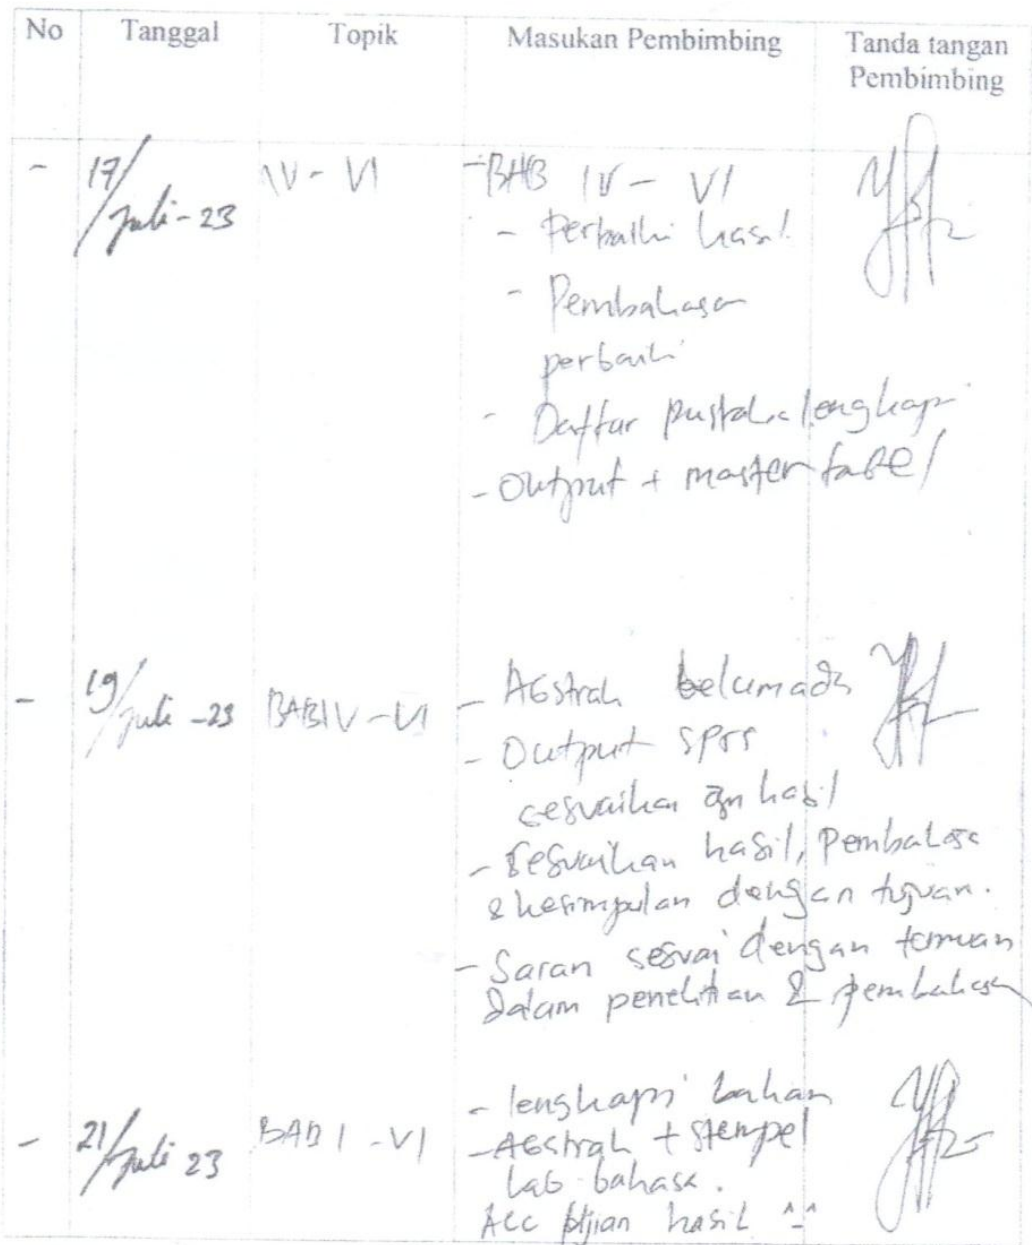 No Tanggal Topik Masukan Pembimbing Tanda tangan
Pembimbing
- 17/Juli-23 IV - VI - BAB IV - VI
- Perbaiki hasil
- Pembahasan
perbaiki
- Daftar pustaka lengkapi
- Output + master tabel
- 19/Juli -23 BAB IV - VI - Abstrak belum ada
- Output SPSS
sesuaikan dgn hasil
- Sesuaikan hasil, Pembahasa
& kesimpulan dengan tujuan.
- Saran sesuai dengan temuan
dalam penelitian & pembahasan
- 21/Juli 23 BAB I - VI - lengkapi bahan
- Abstrak + stempel
lab bahasa.
Acc Ujian hasil ^_^